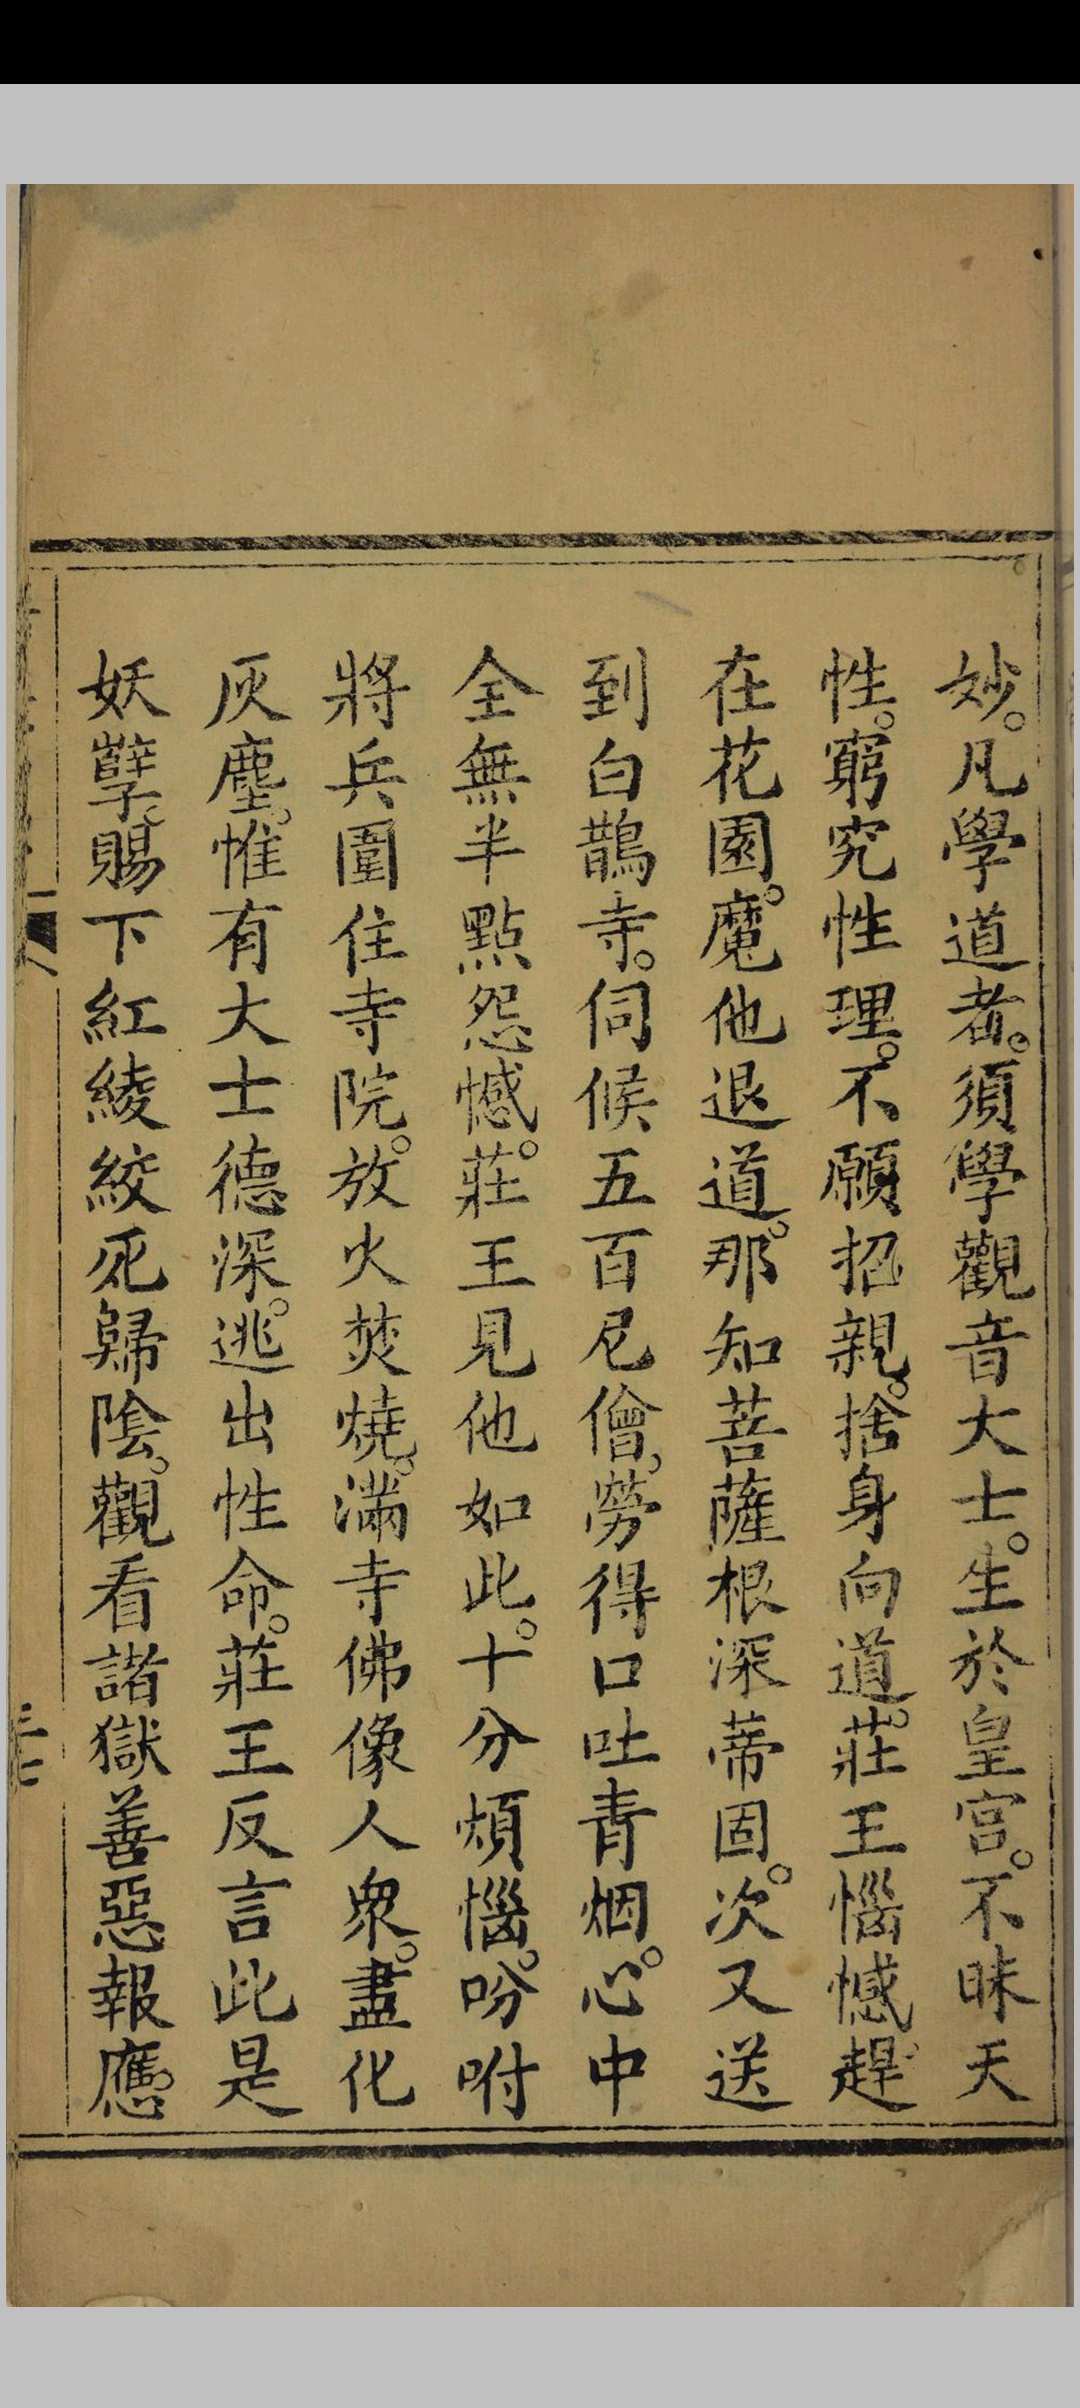 妙。凡學道者。須學觀音大士。生於皇宮。不昧天
性。窮究性理。不願招親。捨身向道。莊王惱憾。趕
在花園。魔他退道。那知菩薩根深蒂固。次又送
到白鵲寺。伺候五百尼僧。勞得口吐青烟。心中
全無半點怨憾。莊王見他如此。十分煩惱。吩咐
將兵圍住寺院。放火焚燒。滿寺佛像人衆。盡化
灰塵。惟有大士德深。逃出性命。莊王反言此是
妖孽。賜下紅綾絞死歸陰。觀看諸獄善惡報應。
三七